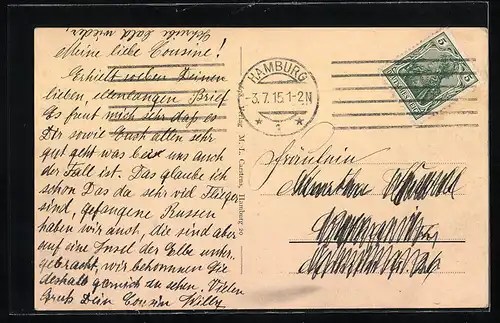 Schreibe bald wieder!
Meine liebe Cousine!
Erhielt soeben Deinen
lieben, ellenlangen Brief
Es freut mich sehr daß es
Dir sowie Euch allen sehr
gut geht was bei uns auch
der Fall ist. Das glaube ich
schon Das da sehr viel Flieger
sind, gefangene Russen
haben wir auch, die sind aber
auf eine Insel der Elbe unter
gebracht, wir bekommen sie
deshalb garnicht zu sehen. Vielen
Gruß Dein Cousin Willy
M. L. Carstens, Hamburg 20
HAMBURG
3.7.15 1-2N
* 1 *
5 5
Fräulein